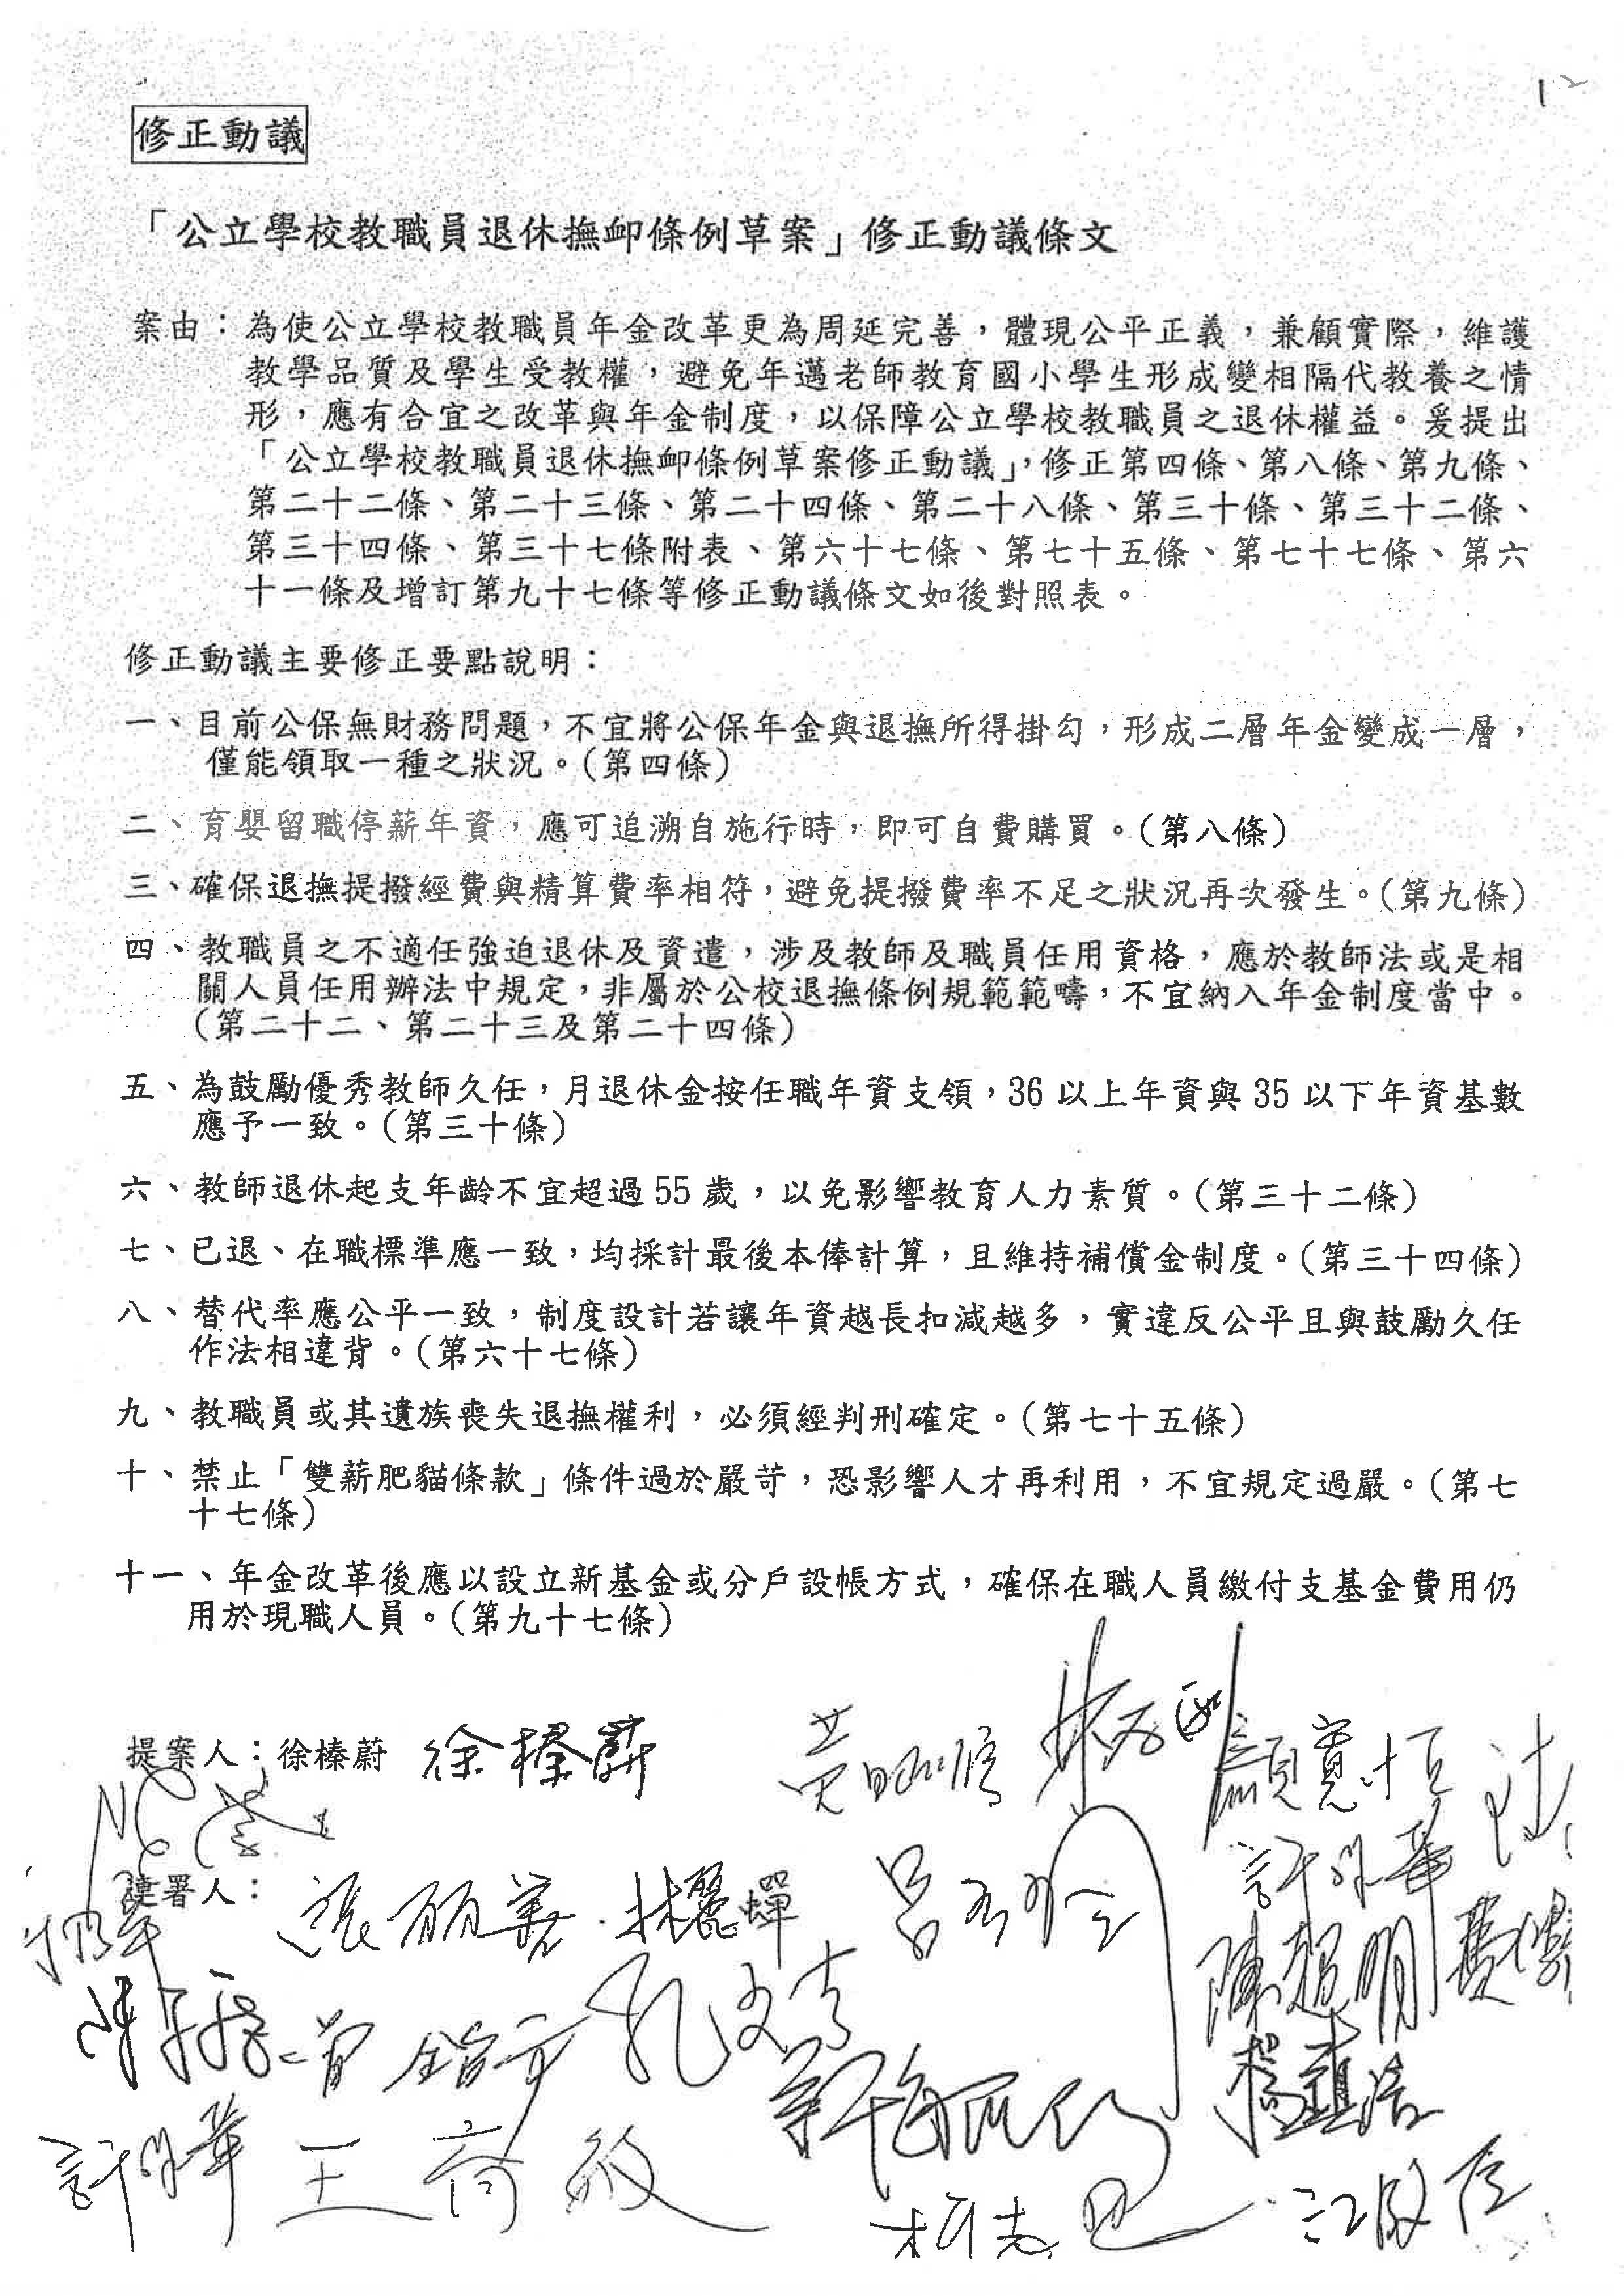 12
修正動議
「公立學校教職員退休撫卹條例草案」修正動議條文
案由：為使公立學校教職員年金改革更為周延完善，體現公平正義，兼顧實際，維護
教學品質及學生受教權，避免年邁老師教育國小學生形成變相隔代教養之情
形，應有合宜之改革與年金制度，以保障公立學校教職員之退休權益。爰提出
「公立學校教職員退休撫卹條例草案修正動議」，修正第四條、第八條、第九條、
第二十二條、第二十三條、第二十四條、第二十八條、第三十條、第三十二條、
第三十四條、第三十七條附表、第六十七條、第七十五條、第七十七條、第六
十一條及增訂第九十七條等修正動議條文如後對照表。
修正動議主要修正要點說明：
一、目前公保無財務問題，不宜將公保年金與退撫所得掛勾，形成二層年金變成一層，
僅能領取一種之狀況。（第四條）
二、育嬰留職停薪年資，應可追溯自施行時，即可自費購買。（第八條）
三、確保退撫提撥經費與精算費率相符，避免提撥費率不足之狀況再次發生。（第九條）
四、教職員之不適任強迫退休及資遣，涉及教師及職員任用資格，應於教師法或是相
關人員任用辦法中規定，非屬於公校退撫條例規範範疇，不宜納入年金制度當中。
（第二十二、第二十三及第二十四條）
五、為鼓勵優秀教師久任，月退休金按任職年資支領，36 以上年資與 35 以下年資基數
應予一致。（第三十條）
六、教師退休起支年齡不宜超過 55 歲，以免影響教育人力素質。（第三十二條）
七、已退、在職標準應一致，均採計最後本俸計算，且維持補償金制度。（第三十四條）
八、替代率應公平一致，制度設計若讓年資越長扣減越多，實違反公平且與鼓勵久任
作法相違背。（第六十七條）
九、教職員或其遺族喪失退撫權利，必須經判刑確定。（第七十五條）
十、禁止「雙薪肥貓條款」條件過於嚴苛，恐影響人才再利用，不宜規定過嚴。（第七
十七條）
十一、年金改革後應以設立新基金或分戶設帳方式，確保在職人員繳付支基金費用仍
用於現職人員。（第九十七條）
提案人：徐榛蔚 徐榛蔚 黃昭順 顏寬恒
連署人： 張麗善 林麗蟬 呂玉玲 許淑華
陳超明
曾銘宗 孔文吉
楊鎮浯
許淑華 王育敏
柯志恩 江啟臣